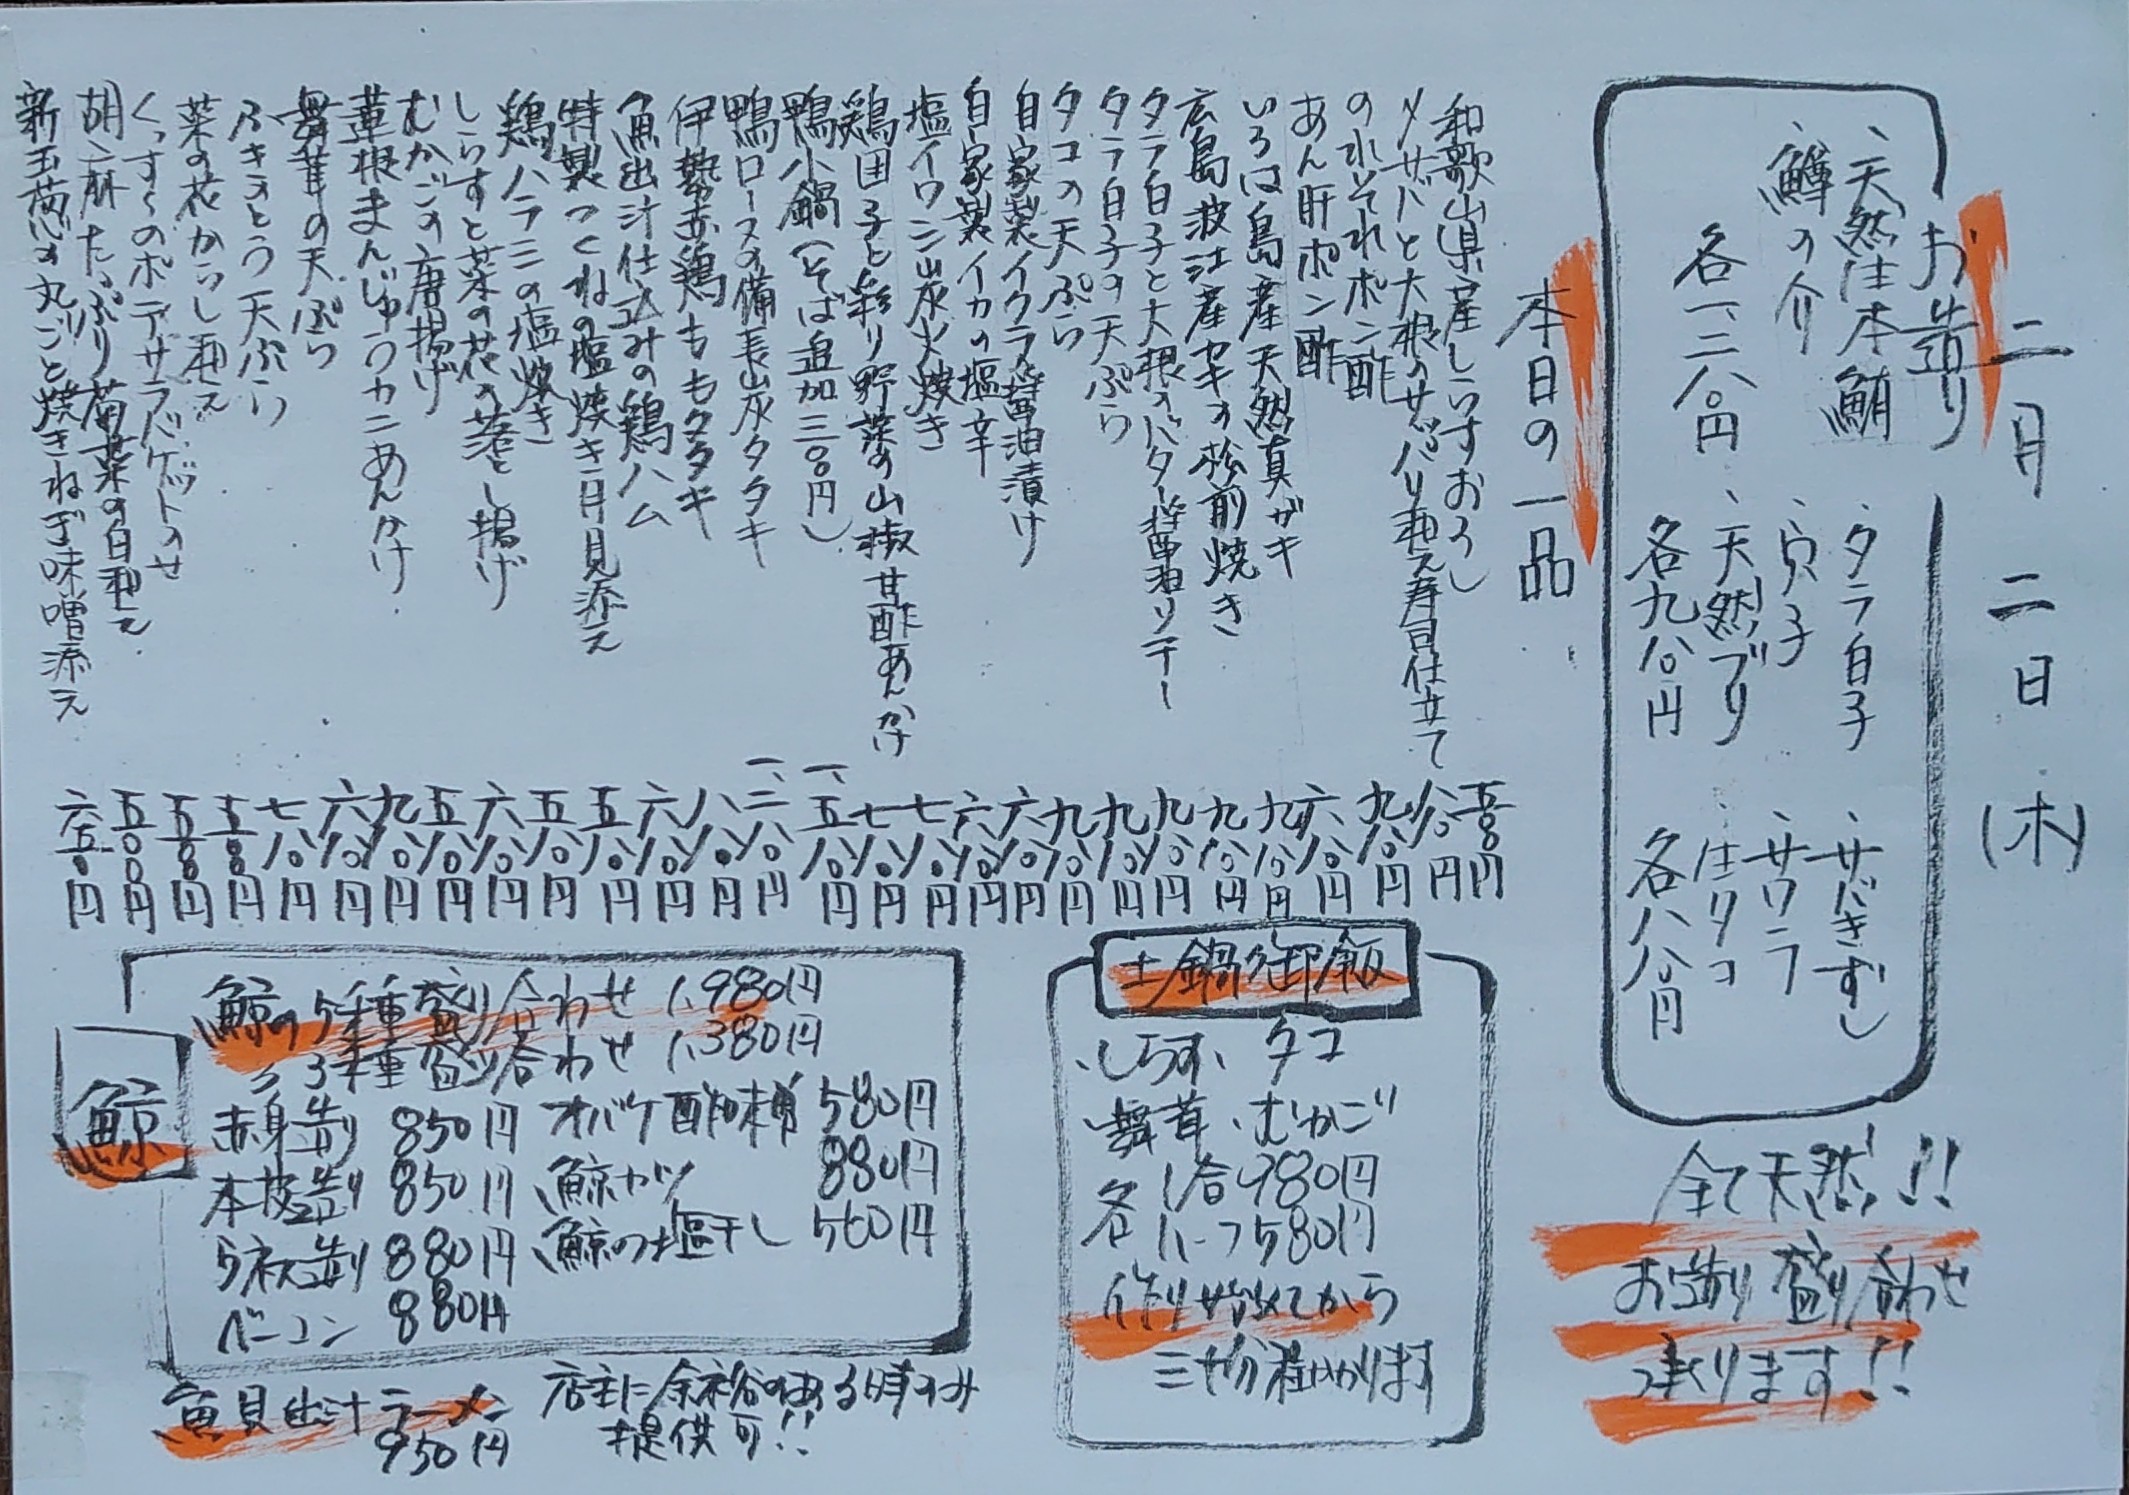 二月二日(木)
お造り
、天然生本鮪
、鱒の介
各一、二八〇円
、タラ白子
、真子
、天然ブリ
各九八〇円
、サバきずし
、サワラ
、生タコ
各八八〇円
全て天然!!
お造り盛り合わせ
承ります!!
本日の一品
和歌山県産しらすおろし 五〇〇円
〆サバと大根のサッパリ和え寿司仕立て 八八〇円
のれそれポン酢 九八〇円
あん肝ポン酢 六八〇円
いろは島産天然真ガキ 九八〇円
広島波江産カキの松前焼き 九八〇円
タラ白子と大根のバター醤油ソテー 九八〇円
タラ白子の天ぷら 九八〇円
タコの天ぷら 九八〇円
自家製イクラ醤油漬け 六八〇円
自家製イカの塩辛 六八〇円
塩イワシ炭火焼き 七八〇円
鶏団子と彩り野菜の山椒甘酢あんかけ 七八〇円
鴨小鍋(そば追加三〇〇円) 一、五八〇円
鴨ロースの備長炭タタキ 一、二八〇円
伊勢赤鶏ももタタキ 八八〇円
魚出汁仕込みの鶏ハム 六八〇円
特製つくねの塩焼き月見添え 五八〇円
鶏ハラミの塩焼き 五八〇円
しらすと菜の花の落とし揚げ 六八〇円
むかごの唐揚げ 五八〇円
蓮根まんじゅうカニあんかけ 九八〇円
舞茸の天ぷら 六八〇円
ふきのとう天ぷら 七八〇円
菜の花からし和え 五〇〇円
くっすーのポテサラバゲットのせ 五五〇円
胡麻たっぷり菊菜の白和え 五〇〇円
新玉葱の丸ごと焼きねぎ味噌添え 六五〇円
土鍋御飯
、しらす、タコ
、舞茸、むかご
各1合980円
各ハーフ580円
作り始めてから
三十分程かかります
鯨
鯨の5種盛り合わせ 1,980円
〃3種盛り合わせ 1,380円
赤身造り 850円 オバケ酢味噌 580円
本皮造り 850円 鯨カツ 880円
ウネス造り 880円 鯨の塩干し 560円
ベーコン 880円
魚貝出汁ラーメン
950円
店主に余裕のある時のみ
提供可!!